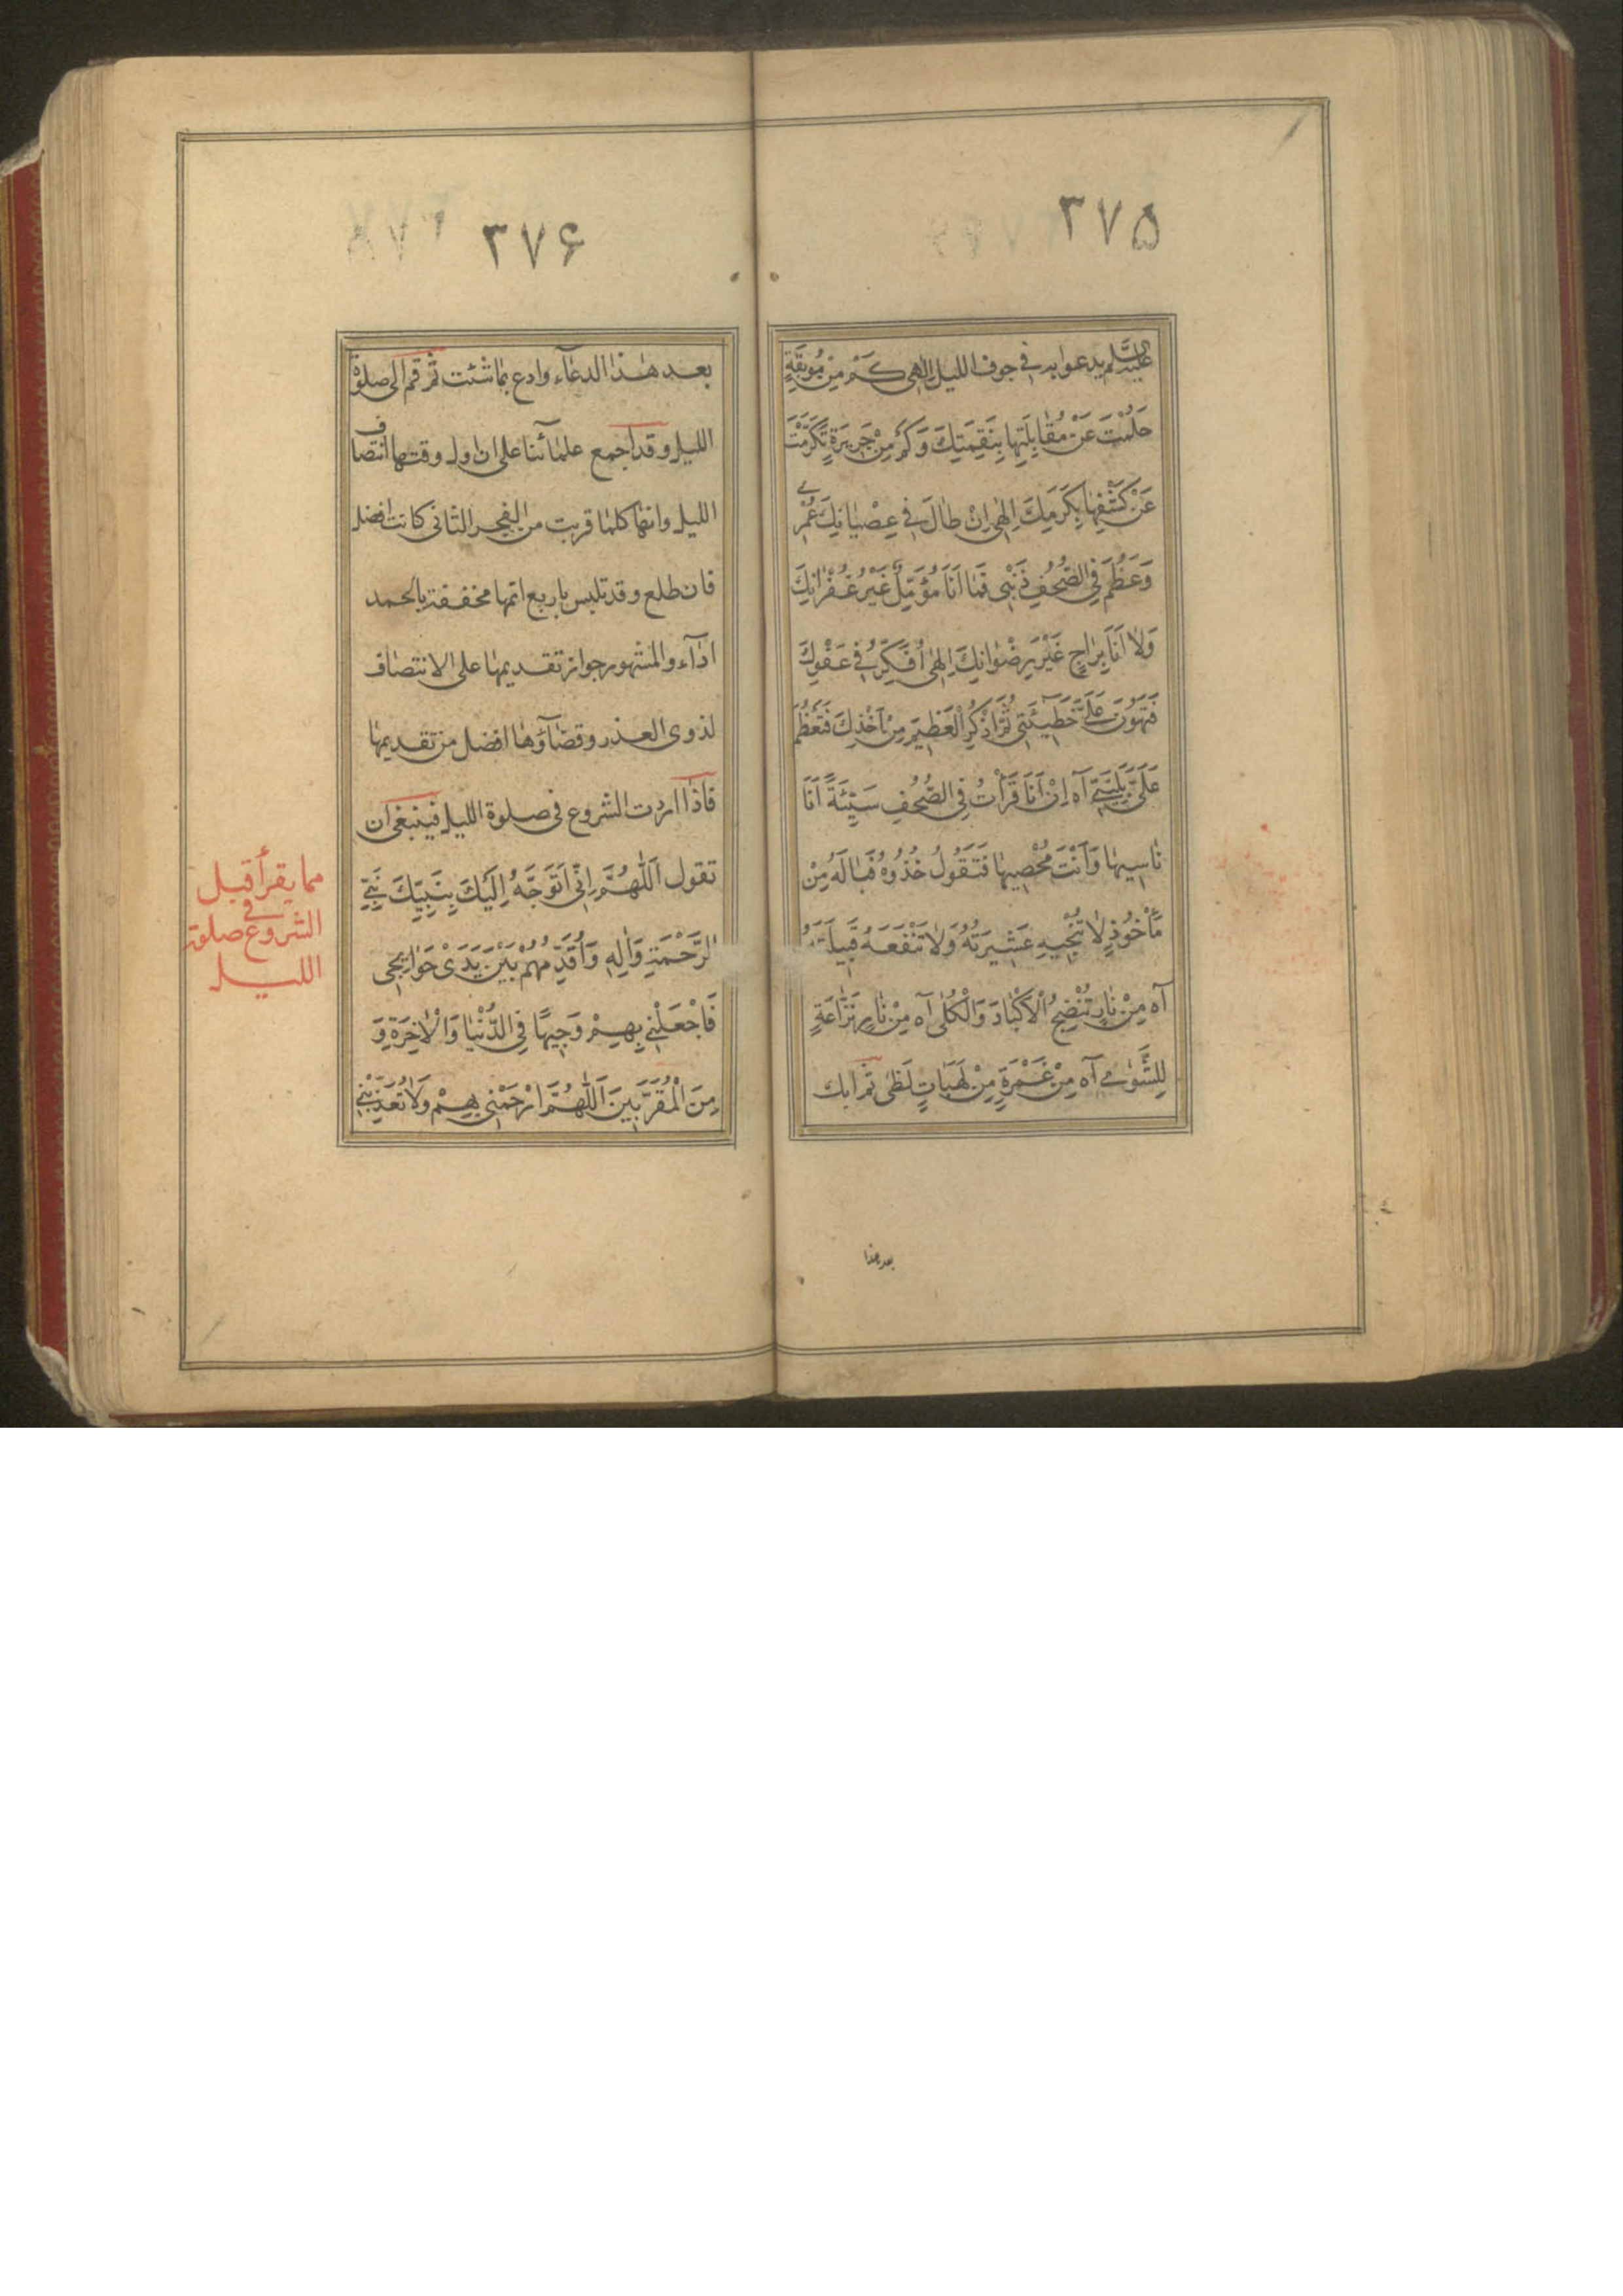 ۳۷۵
عليه السلم يدعو به في جوف الليل اِلٰهى كَمْ مِنْ مُوبِقَةٍ
حَلُمْتَ عَنْ مُقٰابِلَتِهٰا بِنَقِمَتِكَ وَكَمْ مِنْ جَرِيرَةٍ تَكَرَّمْتَ
عَنْ كَشْفِهٰا بِكَرَمِكَ اِلٰهى اِنْ طٰالَ فِي عِصْيٰانِكَ عُمْرِي
وَعَظُمَ فِي الصُّحُفِ ذَنْبِى فَمٰا اَنَا مُؤَمِّلٌ غَيْرَ غُفْرٰانِكَ
وَلٰا اَنَا بِرٰاجٍ غَيْرَ رِضْوٰانِكَ اِلٰهى اُفَكِّرُ فِي عَفْوِكَ
فَتَهُونُ عَلَيَّ خَطِيٓئَتِى ثُمَّ اَذْكُرُ الْعَظِيمَ مِنْ اَخْذِكَ فَتَعْظُمُ
عَلَيَّ بَلِيَّتِي آه اِنْ اَنَا قَرَأْتُ فِي الصُّحُفِ سَيِّئَةً اَنَا
نٰاسِيهٰا وَاَنْتَ مُحْصِيهٰا فَتَقُولُ خُذُوهُ فَيٰا لَهُ مِنْ
مَأْخُوذٍ لٰا تُنْجِيهِ عَشِيرَتُهُ وَلٰا تَنْفَعُهُ قَبِيلَتُهُ
آه مِنْ نٰارٍ تُنْضِجُ الْاَكْبٰادَ وَالْكُلٰى آه مِنْ نٰارٍ نَزّٰاعَةٍ
لِلشَّوٰى آه مِنْ غَمْرَةٍ مِنْ لَهَبٰاتِ لَظٰى ثم ابك
بعد هذا
۳۷۶
بعد هٰذا الدعآء وادع بمٰا شئت ثم قم الى صلوة
الليل وقد اجمع علمٰائنا على ان اول وقتها انتصاف
الليل وانها كلمٰا قربت من الفجر الثانى كانت افضل
فان طلع وقد تلبس باربع اتمها مخففة بالحمد
ادٰآء والمشهور جواز تقديمهٰا على الانتصٰاف
لذوى العذر وقضٰآؤهٰا افضل من تقديمهٰا
فاذٰا اردت الشروع فى صلوة الليل فينبغى ان
تقول اَللّٰهُمَّ اِنِّى اَتَوَجَّهُ اِلَيْكَ بِنَبِيِّكَ نَبِيِّ
الرَّحْمَةِ وَاٰلِهِ وَاُقَدِّمُهُمْ بَيْنَ يَدَىْ حَوٰائِجِى
فَاجْعَلْنِي بِهِمْ وَجِيهًا فِي الدُّنْيٰا وَالْاٰخِرَةِ وَ
مِنَ الْمُقَرَّبِينَ اَللّٰهُمَّ ارْحَمْنِى بِهِمْ وَلٰا تُعَذِّبْنِي
مما يقرأ قبل
الشروع فى صلوة
الليل